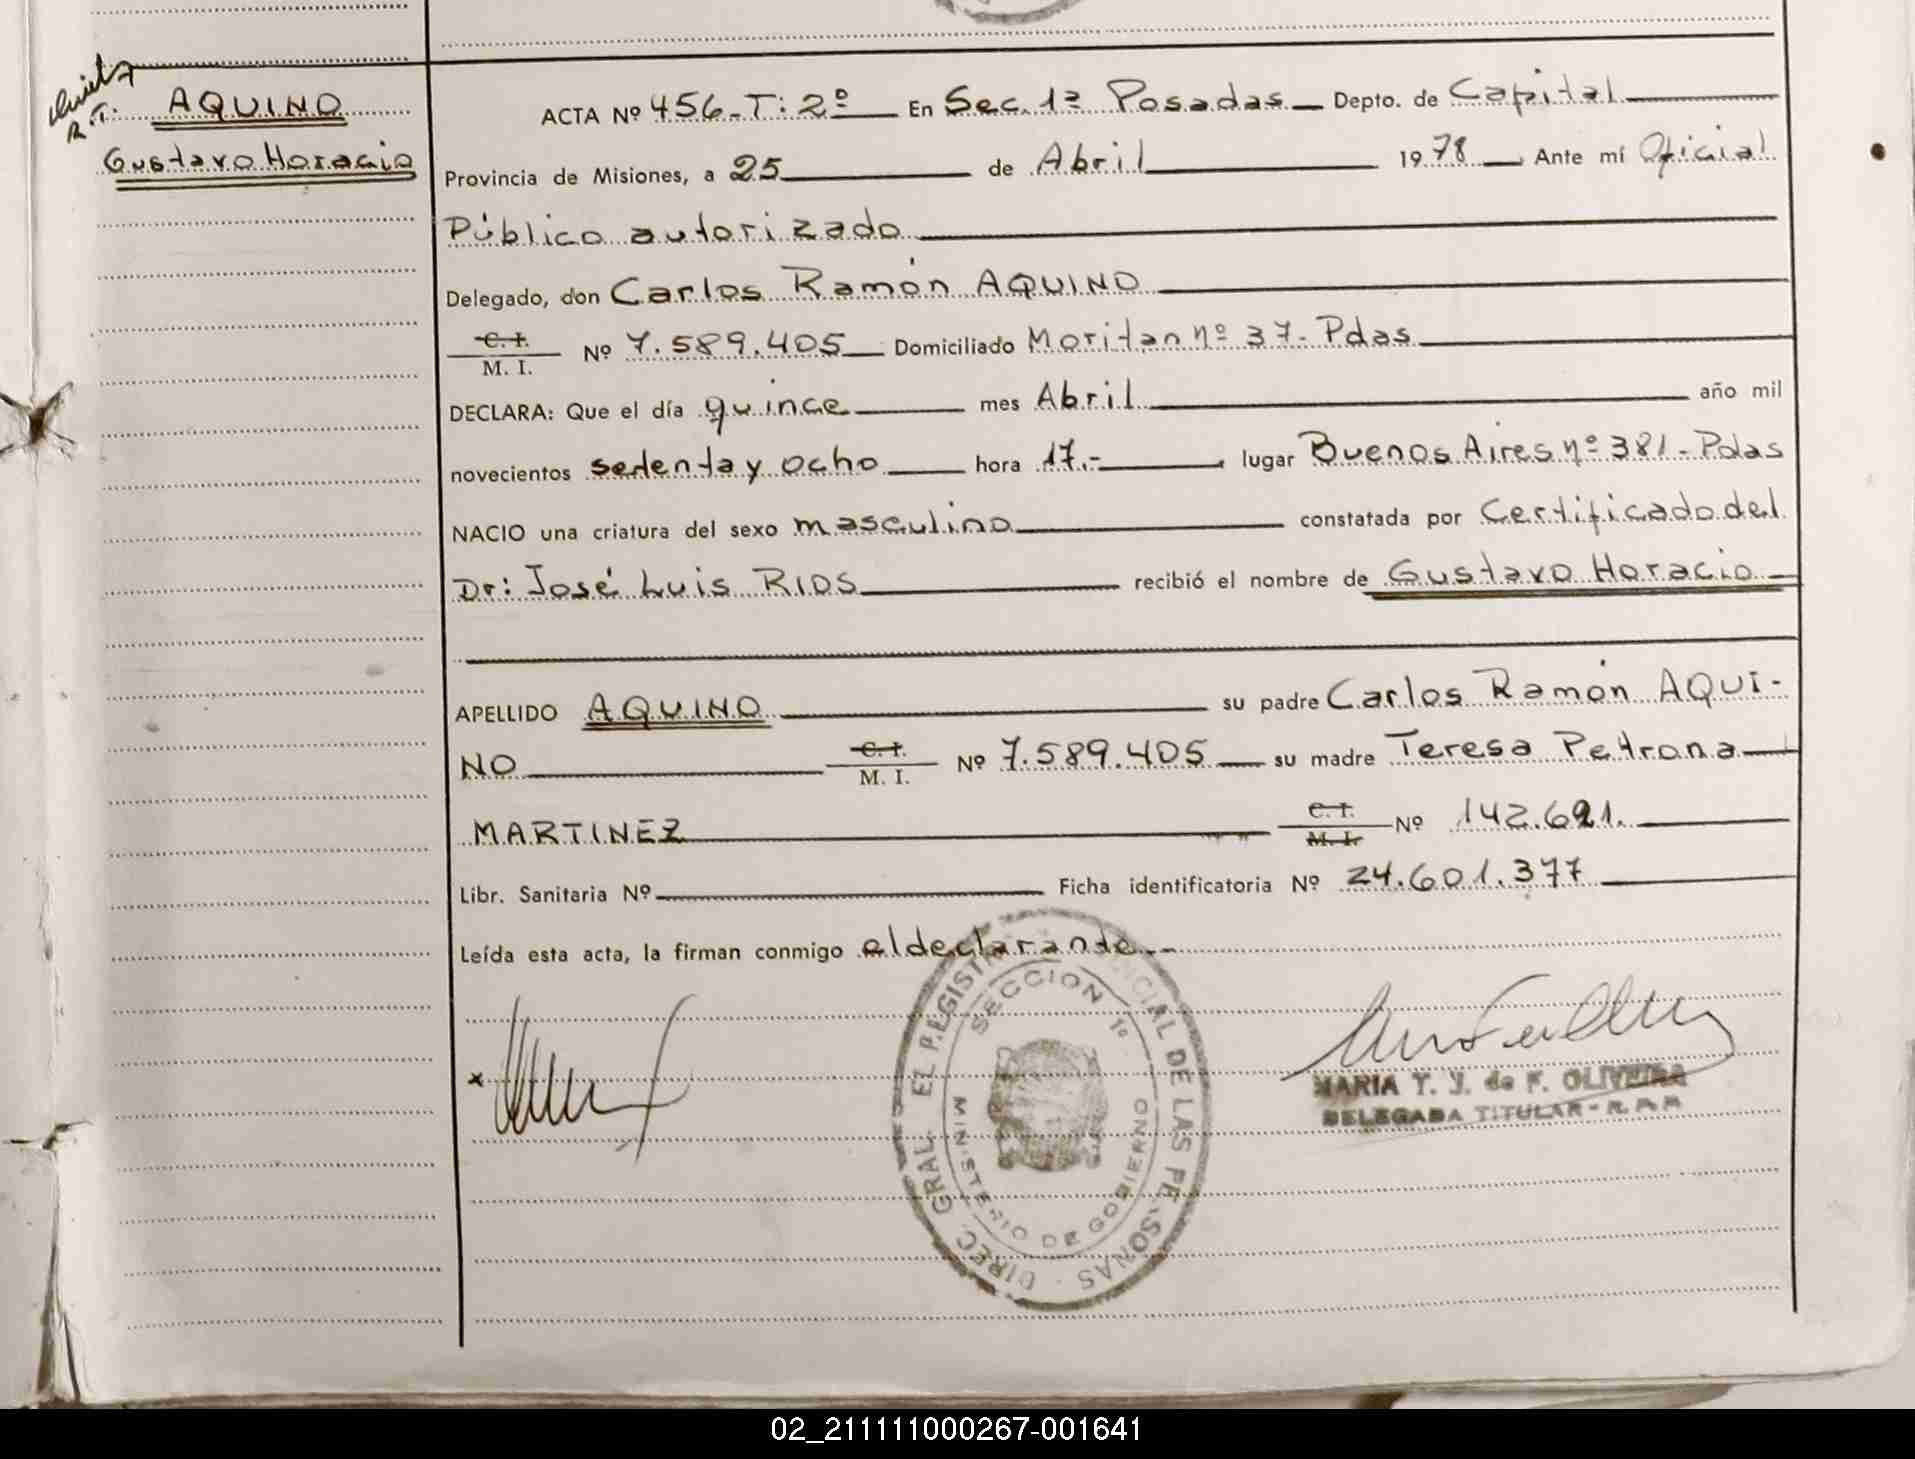 R.T: AQUINO
Gustavo Horacio
ACTA Nº 456-T: 2º En Sec. 1ª Posadas Depto. de Capital
Provincia de Misiones, a 25 de Abril 1978 Ante mí Oficial
Público autorizado
Delegado, don Carlos Ramón AQUINO
C. I.
M. I. Nº 7.589.405 Domiciliado Moritan nº 37- Pdas
DECLARA: Que el día quince mes Abril año mil
novecientos setenta y ocho hora 17.- lugar Buenos Aires nº 381- Pdas
NACIO una criatura del sexo masculino constatada por Certificado del
Dr: José Luis RIOS recibió el nombre de Gustavo Horacio
APELLIDO AQUINO su padre Carlos Ramón AQUI-
NO C. I. M. I. Nº 7.589.405 su madre Teresa Petrona
MARTINEZ C. I. M. I. Nº 142.621.
Libr. Sanitaria Nº Ficha identificatoria Nº 24.601.377
Leída esta acta, la firman conmigo el declarante.-
x
SECCION 1º
MINISTERIO DE GOBIERNO
MARIA T. J. de F. OLIVEIRA
DELEGADA TITULAR - R.P.P.
02_211111000267-001641